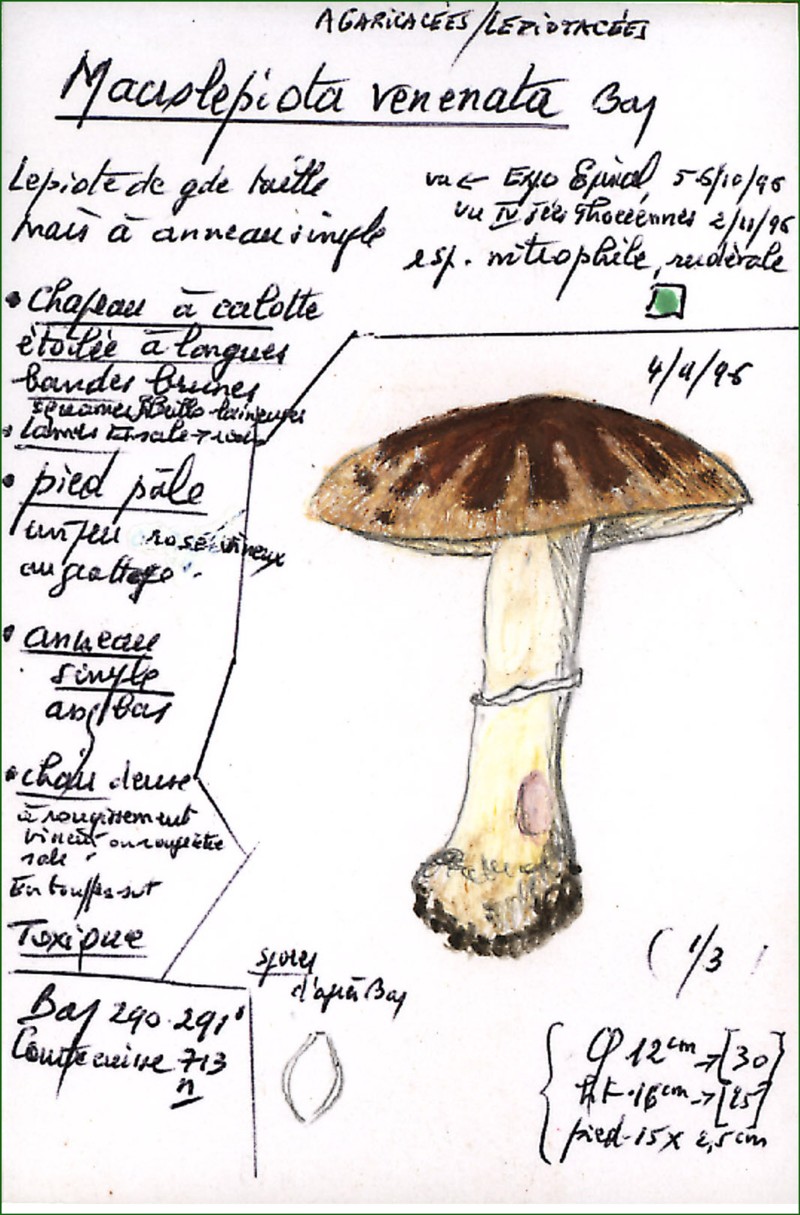 AGARICACÉES/LEPIOTACÉES
Macrolepiota venenata Bon
Lepiote de gde taille
mais à anneau simple
vu Expo Epinal 5-6/10/96
vu 2/11/96
esp. nitrophile, rudérale
• Chapeau à calotte
étoilée à longues
bandes brunes
squames laineuses
• lames sale
• pied pâle
un peu rosé vineux
au grattage
• anneau
simple
assez bas
• chair dense
à rougissement
vineux ou rougeâtre
sale
En touffes svt
Toxique
4/11/96
(1/3)
Bon 290-291
Courtecuisse 713
n
spores
d'après Bon
Φ 12cm → [30]
ht. 16cm → [25]
pied 15 x 2,5cm